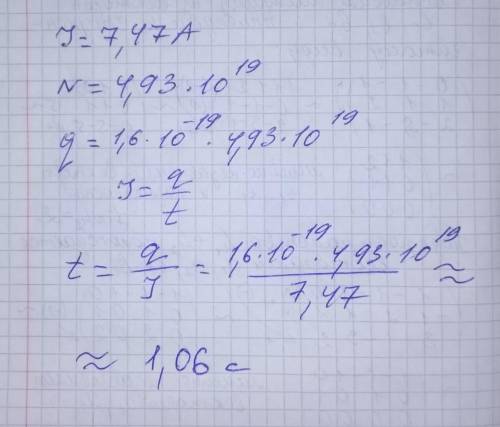 I = 7,47 A
N = 4,93 · 10^19
q = 1,6 · 10^-19 · 4,93 · 10^19
I = q/t
t = q/I = (1,6 · 10^-19 · 4,93 · 10^19)/7,47 ≈
≈ 1,06 с